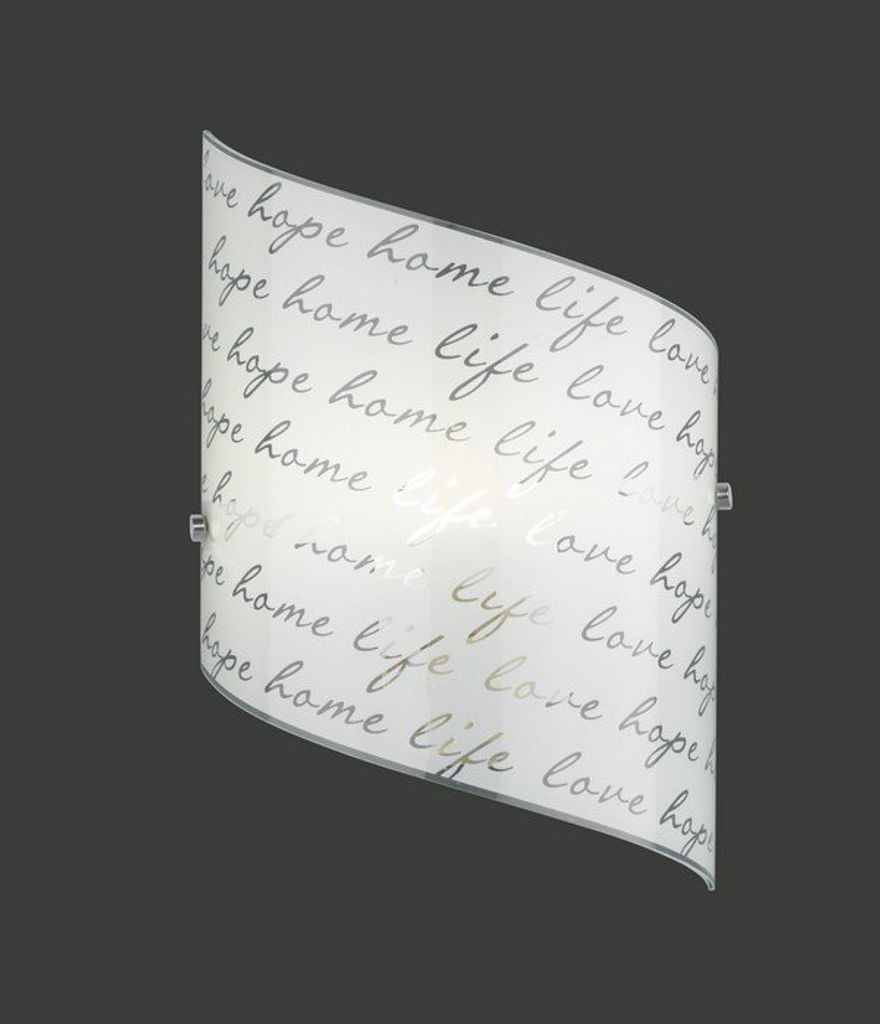 love hope home life love
hope home life love hop
ve hope home life love
hope home life love hope
e hope home life love hop
pe home life love hope h
hope home life love hope